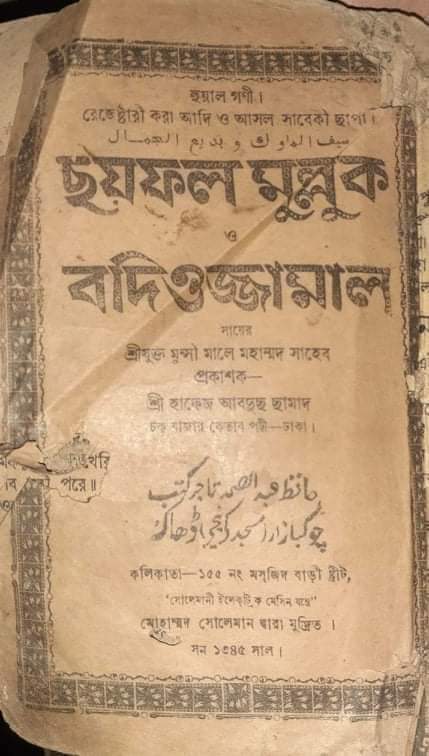 হুয়াল গণী।
রেজেষ্টারী করা আদি ও আসল সাবেকী ছাপা।
سيف الملوك و بديع الجمال
ছয়ফল মুল্লুক
ও
বদিওজ্জামাল
সায়ের
শ্রীযুক্ত মুন্সী মালে মহাম্মদ সাহেব
প্রকাশক—
শ্রী হাফেজ আবদুছ ছামাদ
চক্‌ বাজার কেতাব পটী—ঢাকা।
حافظ عبد الصمد تاجر كتب
چوكبازار مسجد كے نیچے ڈھاكہ
কলিকাতা—১৫৫ নং মসজিদ বাড়ী ষ্ট্রীট,
"সোলেমানী ইলেকট্রিক মেসিন যন্ত্রে"
মোহাম্মদ সোলেমান দ্বারা মুদ্রিত।
সন ১৩৪৫ সাল।
পরে॥